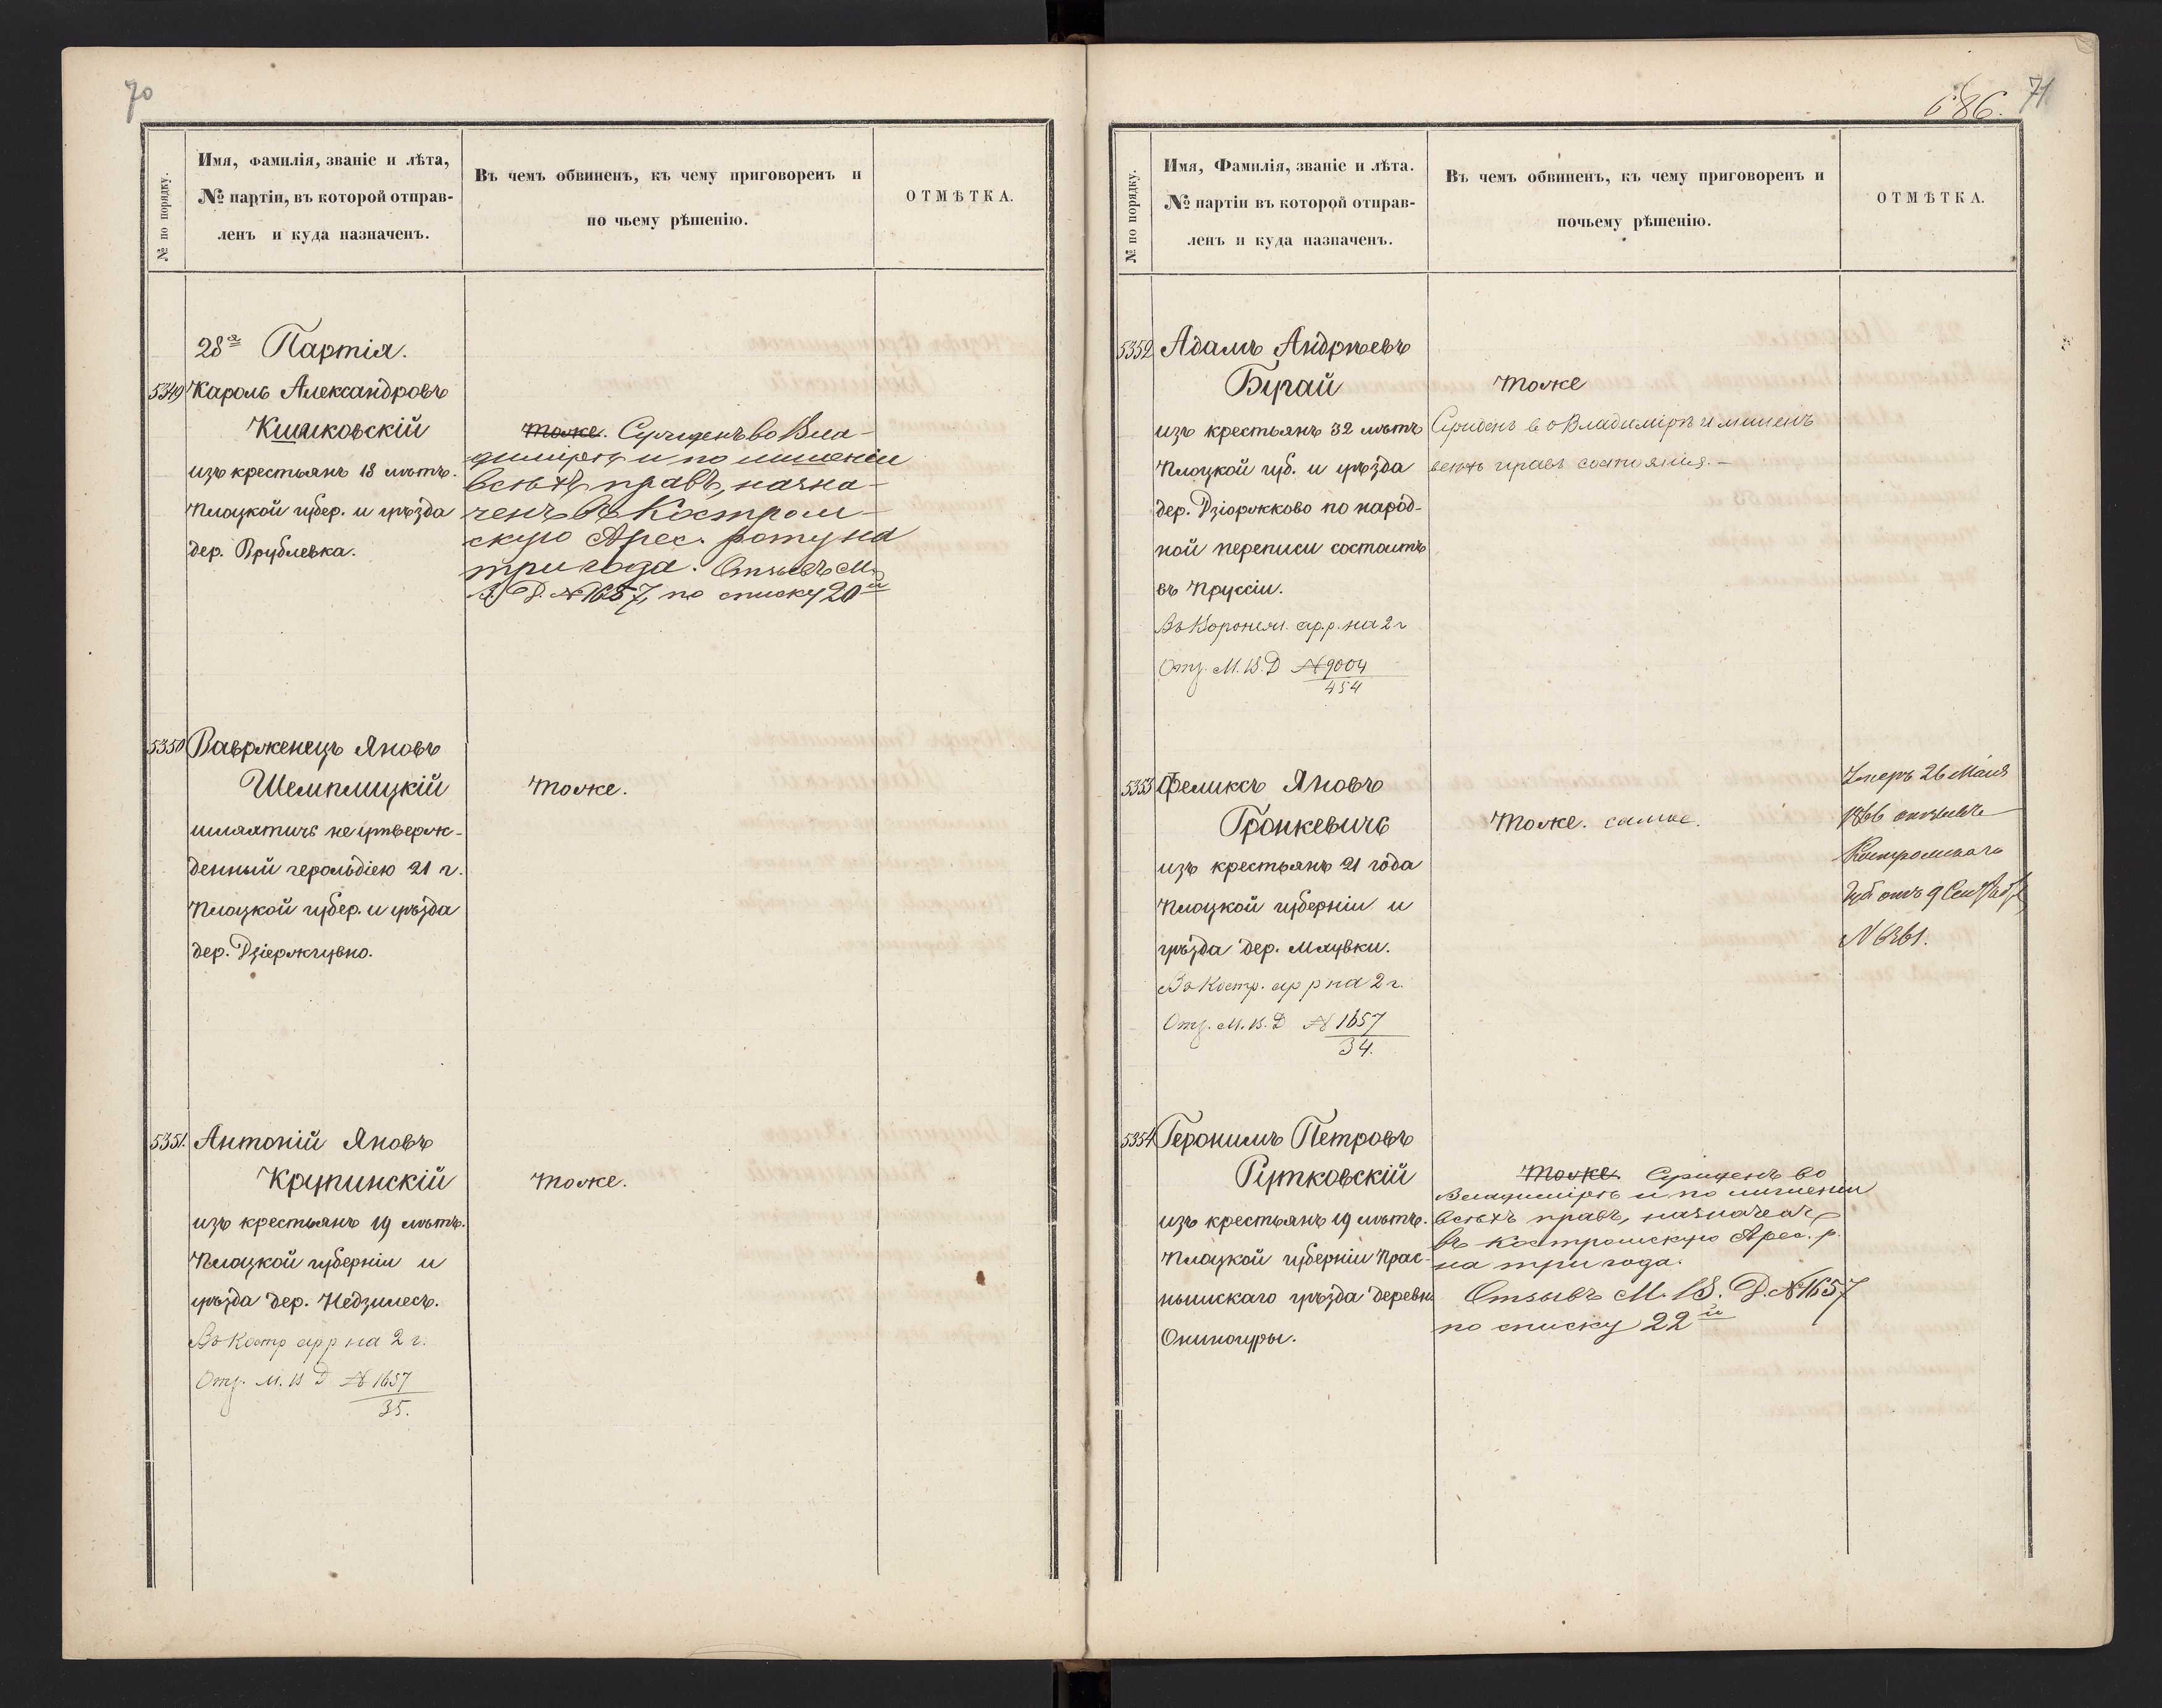 70
№ по порядку.
Имя, фамилія, званіе и лѣта,
№ партіи, въ которой отправ-
ленъ и куда назначенъ.
Въ чемъ обвиненъ, къ чему приговоренъ и
по чьему рѣшенію.
ОТМѢТКА.
28ª Партія.
5349 Кароль Александровъ
Кшиковскій
изъ крестьянъ 18 лѣтъ.
Плоцкой губер. и уѣзда
дер. Врублевка.
тоже. Сужденъ во Вла-
димірѣ и по лишеніи
всѣхъ правъ, назна-
ченъ въ Костром-
скую Арес. роту на
три года. Отзывъ М.
В. Д. №1657, по списку 20й
5350 Ваврженецъ Яновъ
Шемплицкій
шляхтичъ не утверж-
денный герольдіею 21 г.
Плоцкой губер. и уѣзда
дер. Дзіержгувно.
тоже.
5351. Антоній Яновъ
Крупинскій
изъ крестьянъ 19 лѣтъ.
Плоцкой губерніи и
уѣзда дер. Недзилесъ.
Въ Костр ар р на 2 г.
Отз. М. В Д № 1657
35.
тоже.
686. 71
№ по порядку.
Имя, Фамилія, званіе и лѣта.
№ партіи въ которой отправ-
ленъ и куда назначенъ.
Въ чемъ обвиненъ, къ чему приговоренъ и
почьему рѣшенію.
ОТМѢТКА.
5352 Адамъ Андрѣевъ
Бугай
изъ крестьянъ 32 лѣтъ
Плоцкой губ. и уѣзда
дер. Дзіоржково по народ-
ной переписи состоитъ
въ Пруссіи.
Въ Воронеж. ар. р. на 2 г
Отз. М. В. Д №9004
454
тоже
Сужденъ во Владимірѣ и лишенъ
всѣхъ правъ состоянія.-
5353 Феликсъ Яновъ
Гронкевичъ
изъ крестьянъ 21 года
Плоцкой губерніи и
уѣзда дер. Мяувки.
Въ Костр. ар р на 2 г.
Отз. М. В. Д № 1657
34.
тоже. самое.
Умеръ 26 Мая
1866 отзывъ
Костромскаго
Губ отъ 9 Сентября
N 6361.
5354 Геронимъ Петровъ
Рутковскій
изъ крестьянъ 19 лѣтъ.
Плоцкой губерніи Прас-
нышскаго уѣзда деревни
Опиногуры.
тоже Сужденъ во
Владимірѣ и по лишеніи
всѣхъ правъ, назначенъ
въ Костромскую Арес. р.
на три года.
Отзывъ М. В. Д. №1657
по списку 22й